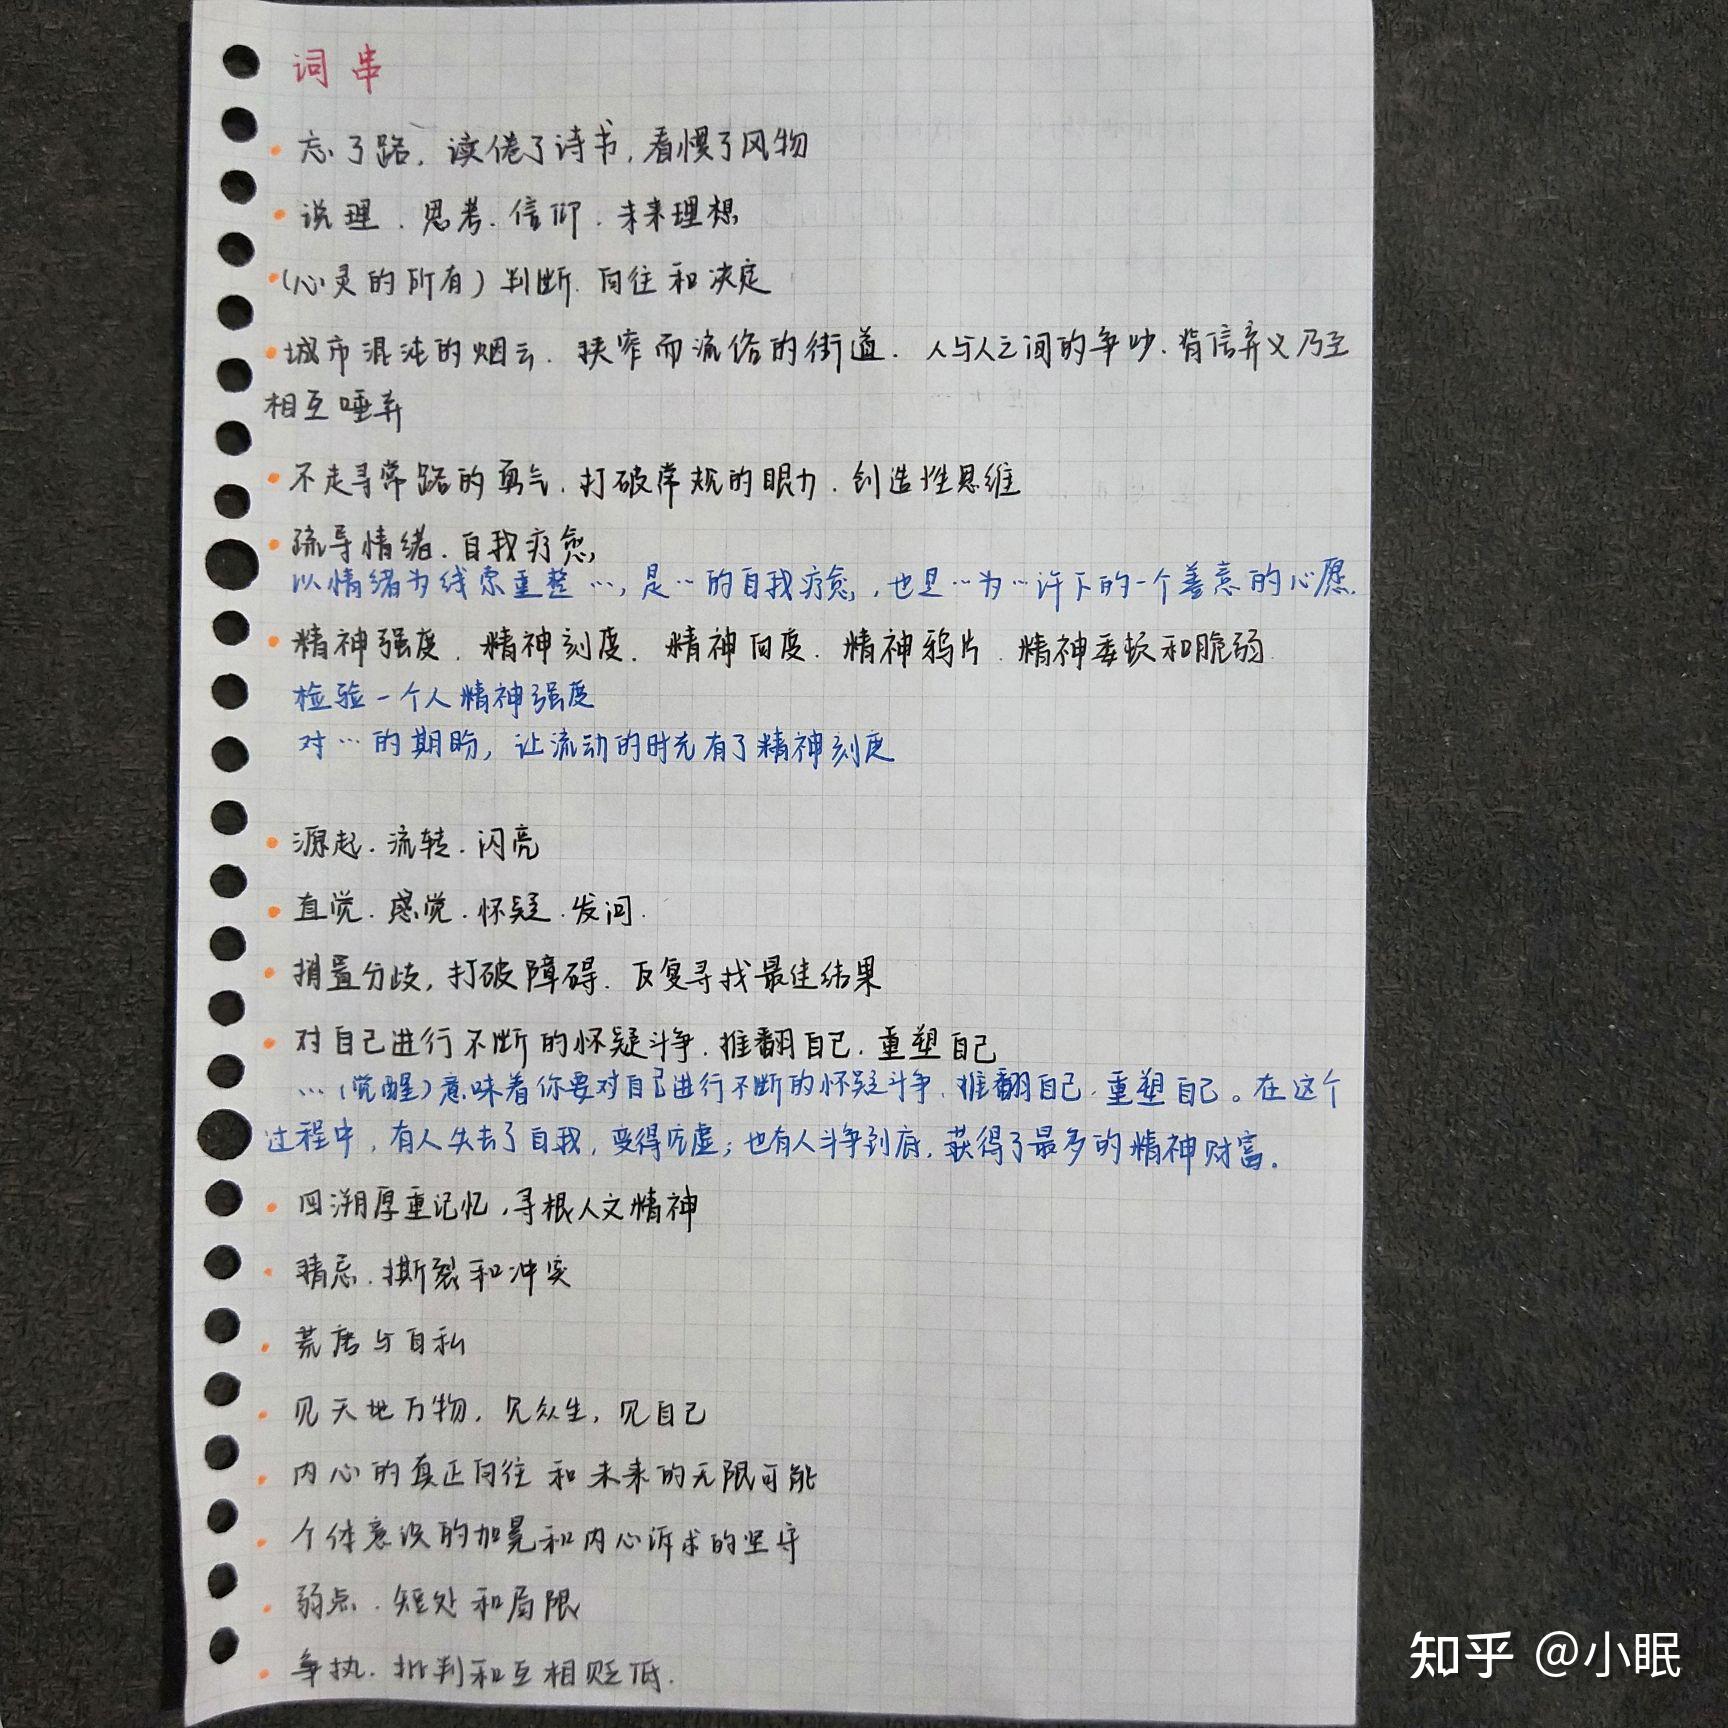 词串
忘了路，读倦了诗书，看惯了风物
说理、思考、信仰、未来理想
(心灵的所有)判断、向往和决定
城市混沌的烟云、狭窄而流俗的街道、人与人之间的争吵、背信弃义乃至
相互唾弃
不走寻常路的勇气、打破常规的眼力、创造性思维
疏导情绪、自我疗愈
以情绪为线索重整…，是…的自我疗愈，也是…为…许下的一个善意的心愿.
精神强度、精神刻度、精神向度、精神鸦片、精神委顿和脆弱
检验一个人精神强度
对…的期盼，让流动的时光有了精神刻度
源起、流转、闪亮
直觉、感觉、怀疑、发问.
捐置分歧，打破障碍、反复寻找最佳结果
对自己进行不断的怀疑斗争、推翻自己、重塑自己
…(觉醒)意味着你要对自己进行不断的怀疑斗争、推翻自己、重塑自己。在这个
过程中，有人失去了自我，变得虚；也有人斗争到底，获得了最多的精神财富。
回溯厚重记忆，寻根人文精神
猜忌、撕裂和冲突
荒唐与自私
见天地万物，见众生，见自己
内心的真正向往和未来的无限可能
个体意识的加冕和内心诉求的坚守
弱点、短处和局限
争执、批判和互相贬低.
知乎 @小眠